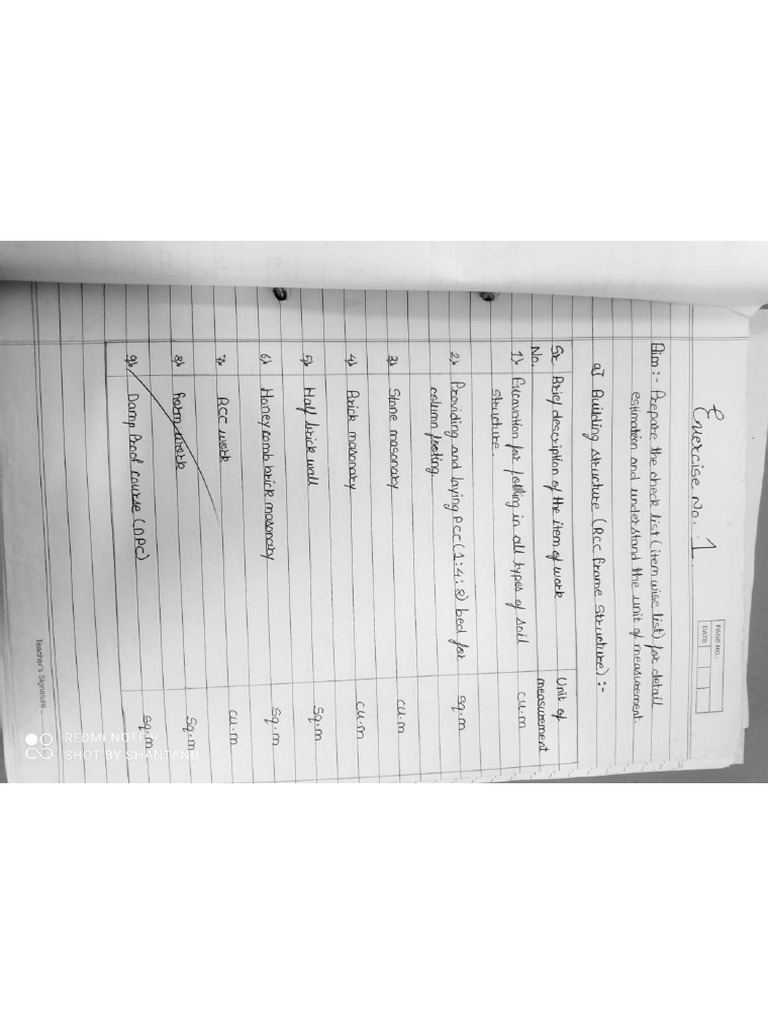 PAGE NO.:
DATE
Exercise No. 1.
Aim:- Prepare the check list (item wise list) for detail
estimation and understand the unit of measurement.
a] Building structure (Rcc frame structure) :-
Sr. No. Brief description of the item of work Unit of measurement
1) Excavation for in all types of soil cu.m
structure.
2) Providing and laying Pcc (1:4:8) bed for sq.m
column footing.
3) Stone masonary cu.m
4) Brick masonary cu.m
5) Half brick wall Sq.m
6) Honey comb brick masonary Sq.m
7) RCC work cu.m
8) Form work Sq.m
9) Damp Proof course (DPC) Sq.m
Teacher's Signature
REDMI NOTE 9
SHOT BY SHANTANU